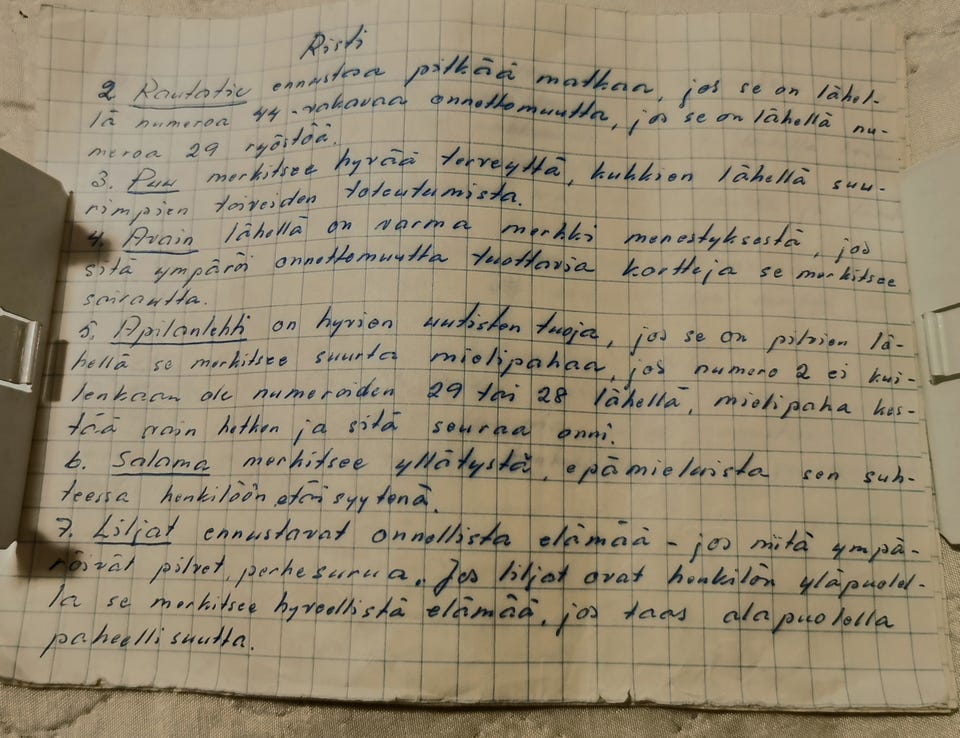 Risti
2 Rautatie ennustaa pitkää matkaa, jos se on lähel-
lä numeroa 44 - vakavaa onnettomuutta, jos se on lähellä nu-
meroa 29 ryöstöä.
3. Puu merkitsee hyvää terveyttä, kukkien lähellä suu-
rimpien toiveiden toteutumista.
4. Avain lähellä on varma merkki menestyksestä, jos
sitä ympäröi onnettomuutta tuottavia kortteja se merkitsee
sairautta.
5. Apilanlehti on hyvien uutisten tuoja, jos se on pilvien lä-
hellä se merkitsee suurta mielipahaa, jos numero 2 ei kui-
tenkaan ole numeroiden 29 tai 28 lähellä, mielipaha kes-
tää vain hetken ja sitä seuraa onni.
6. Salama merkitsee yllätystä, epämieluista sen suh-
teessa henkilöön etäisyytenä.
7. Liljat ennustavat onnellista elämää - jos niitä ympä-
röivät pilvet, perhesurua. Jos liljat ovat henkilön yläpuolel-
la se merkitsee hyveellistä elämää, jos taas alapuolella
paheellisuutta.